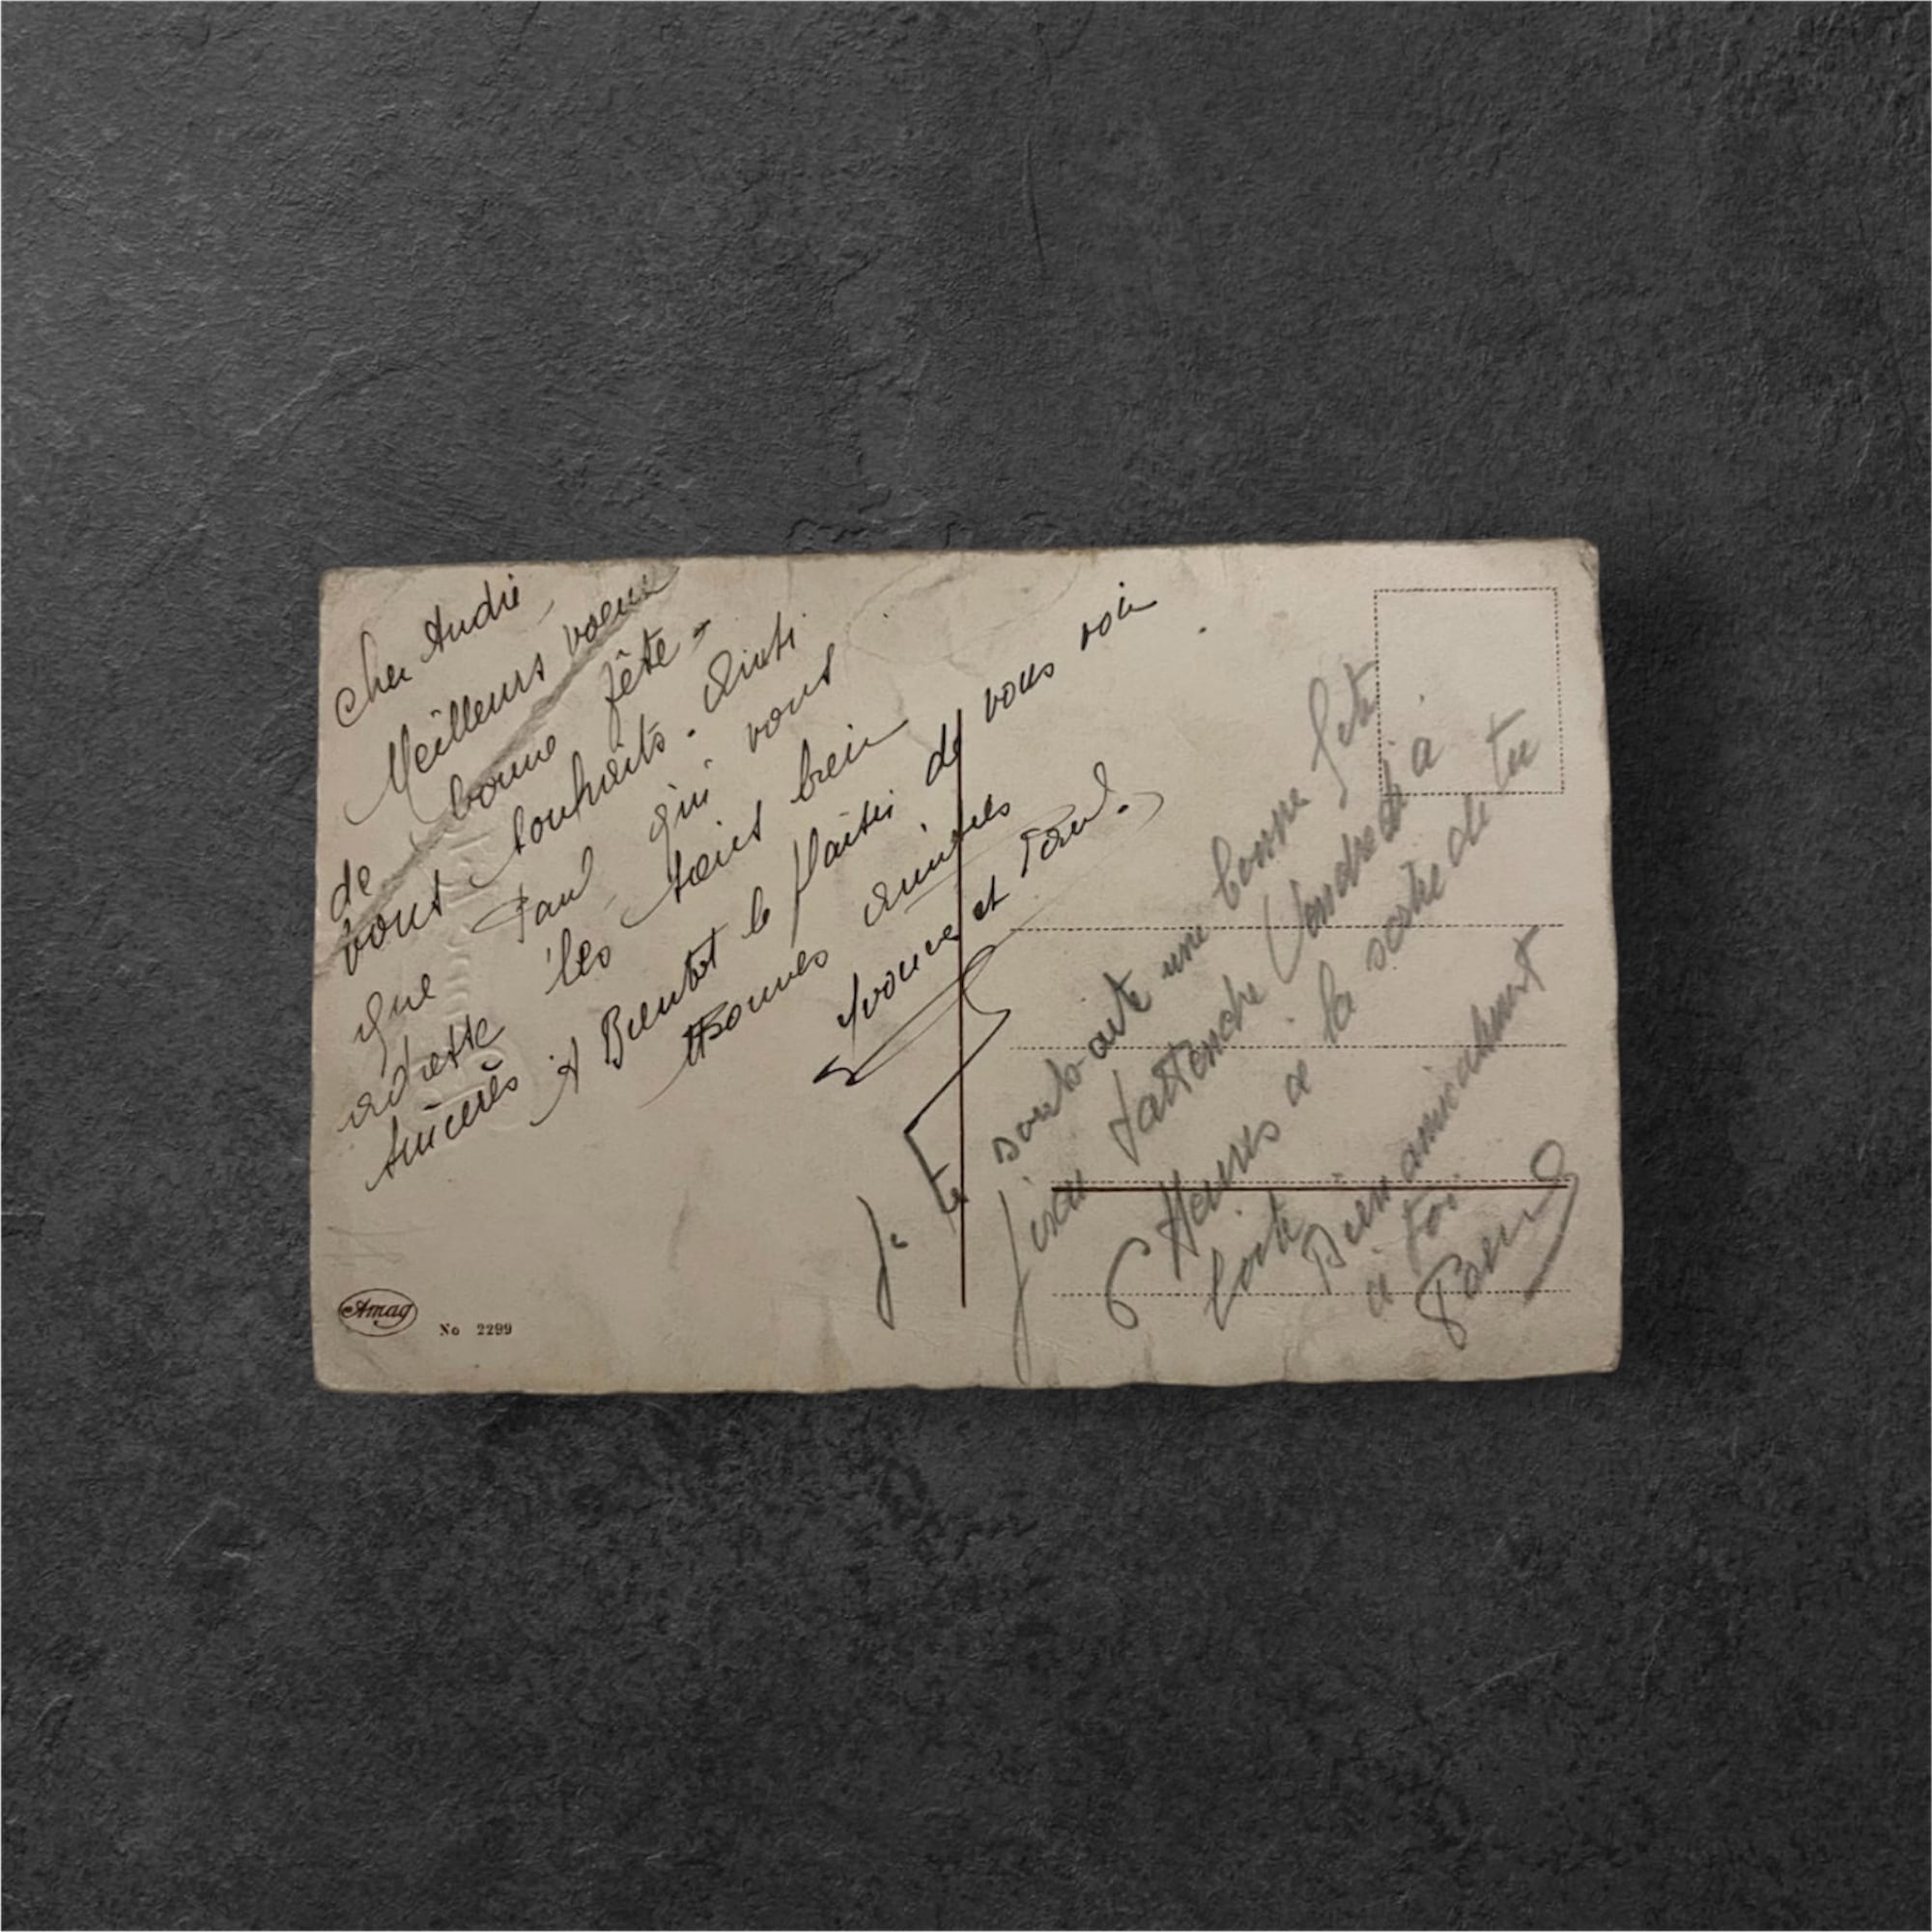 Cher André
Meilleurs voeux
de bonne fête -
vous souhaits. Ainsi
que Paul qui vous
adresse les siens bien
sincères
A Bientot le plaisir de vous voir
Bonnes amitiés
Yvonne et Paul.
Je te souhaite une bonne fete
J'irai t'attendre Vendredi à
6 Heures a la sortie de tu
boite
Bien amicalement
a toi
Paul
Amag
No 2299